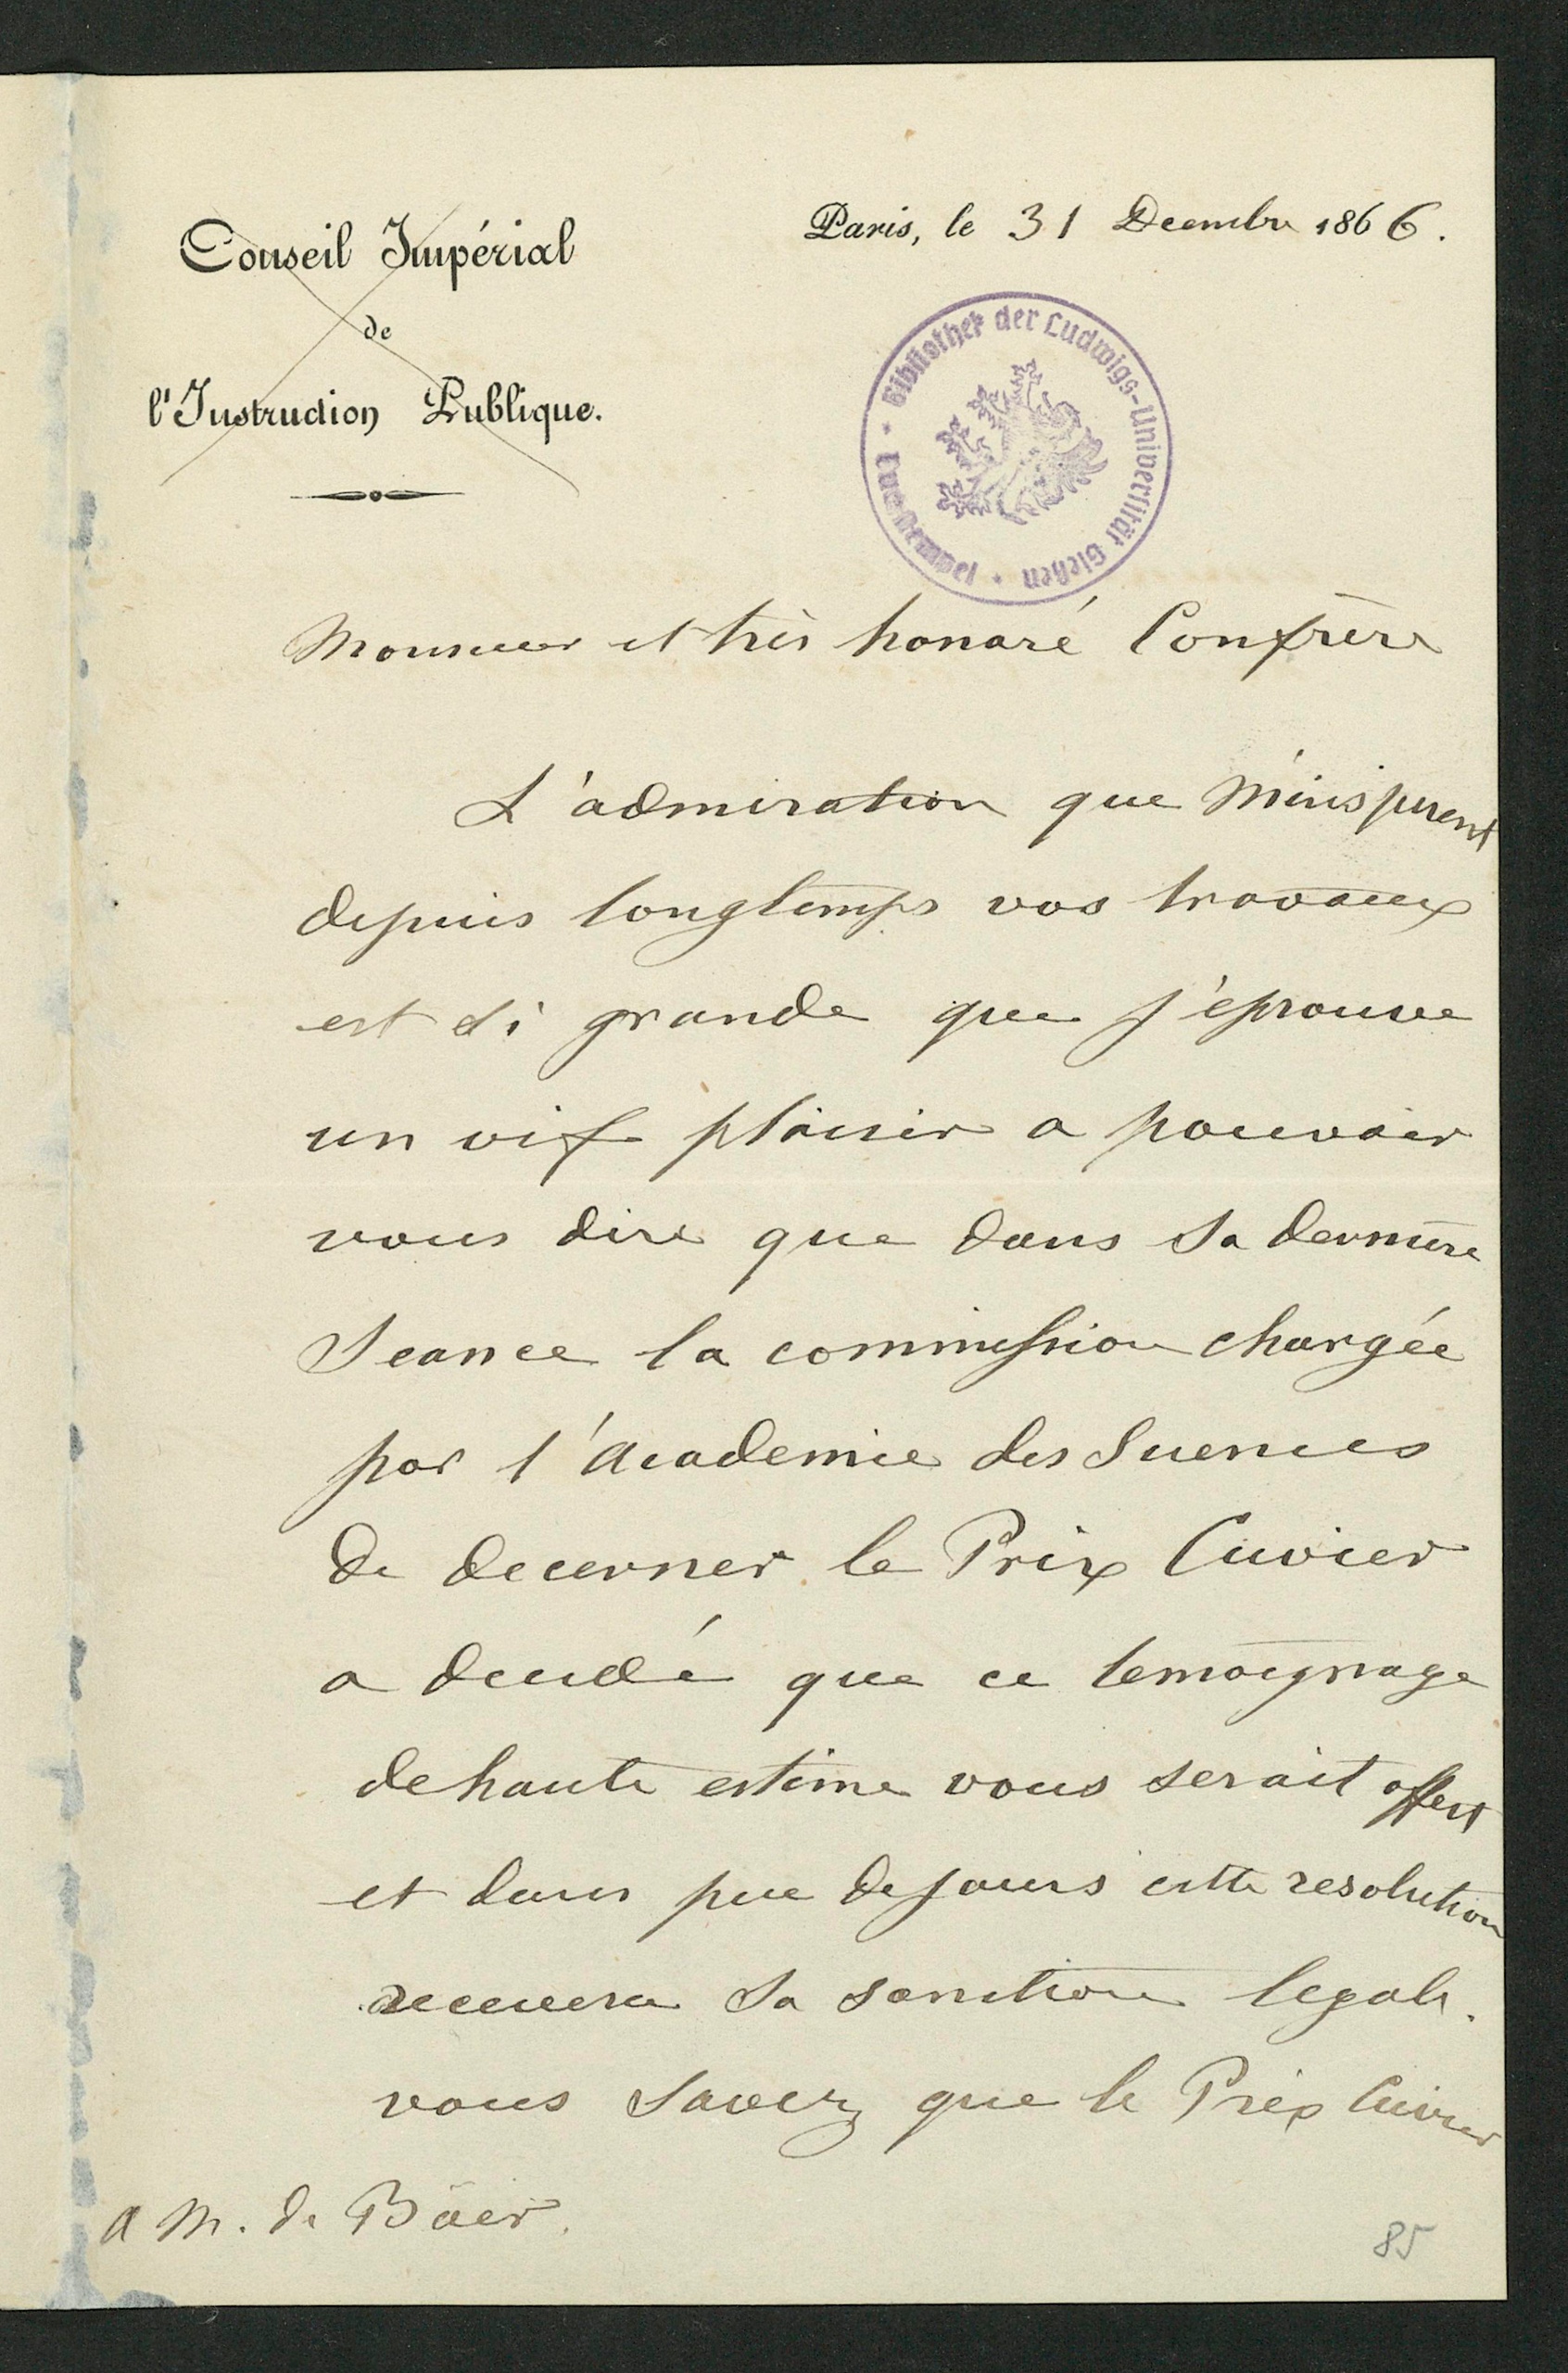 Conseil Impérial
de
l'Instruction Publique.
Paris, le 31 Decembre 1866.
Bibliothek der Ludwigs-Universität Gießen
Monsieur et très honoré Confrère
L'admiration que m'inspirent
depuis longtemps vos travaux
est si grande que j'éprouve
un vif plaisir a pouvoir
vous dire que dans sa dernière
Seance la commission chargée
par l'Academie des Sciences
de decerner le Prix Cuvier
a decidé que ce temoignage
de haute estime vous serait offert
et dans peu de jours cette resolution
recevera sa sanction legale.
vous savez que le Prix Cuvier
a M. de Bäer.
85